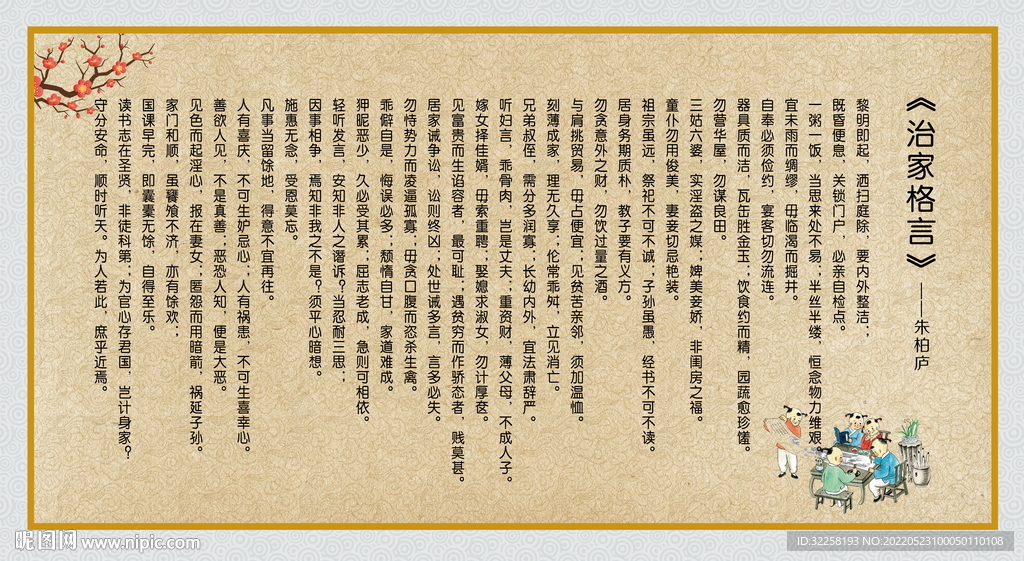 《治家格言》
——朱柏庐
黎明即起，洒扫庭除，要内外整洁；
既昏便息，关锁门户，必亲自检点。
一粥一饭，当思来处不易；半丝半缕，恒念物力维艰。
宜未雨而绸缪，毋临渴而掘井。
自奉必须俭约，宴客切勿流连。
器具质而洁，瓦缶胜金玉；饮食约而精，园蔬愈珍馐。
勿营华屋，勿谋良田。
三姑六婆，实淫盗之媒；婢美妾娇，非闺房之福。
童仆勿用俊美，妻妾切忌艳装。
祖宗虽远，祭祀不可不诚；子孙虽愚，经书不可不读。
居身务期质朴，教子要有义方。
勿贪意外之财，勿饮过量之酒。
与肩挑贸易，毋占便宜；见贫苦亲邻，须加温恤。
刻薄成家，理无久享；伦常乖舛，立见消亡。
兄弟叔侄，需分多润寡；长幼内外，宜法肃辞严。
听妇言，乖骨肉，岂是丈夫；重资财，薄父母，不成人子。
嫁女择佳婿，毋索重聘；娶媳求淑女，勿计厚奁。
见富贵而生谄容者，最可耻；遇贫穷而作骄态者，贱莫甚。
居家诫争讼，讼则终凶；处世诫多言，言多必失。
勿恃势力而凌逼孤寡；毋贪口腹而恣杀生禽。
乖僻自是，悔误必多；颓惰自甘，家道难成。
狎昵恶少，久必受其累；屈志老成，急则可相依。
轻听发言，安知非人之谮诉？当忍耐三思；
因事相争，焉知非我之不是？须平心暗想。
施惠无念，受恩莫忘。
凡事当留馀地，得意不宜再往。
人有喜庆，不可生妒忌心；人有祸患，不可生喜幸心。
善欲人见，不是真善；恶恐人知，便是大恶。
见色而起淫心，报在妻女；匿怨而用暗箭，祸延子孙。
家门和顺，虽饔飧不济，亦有馀欢；
国课早完，即囊橐无馀，自得至乐。
读书志在圣贤，非徒科第；为官心存君国，岂计身家？
守分安命，顺时听天。为人若此，庶乎近焉。
昵图网 www.nipic.com
ID:32258193 NO:20220523100050110108